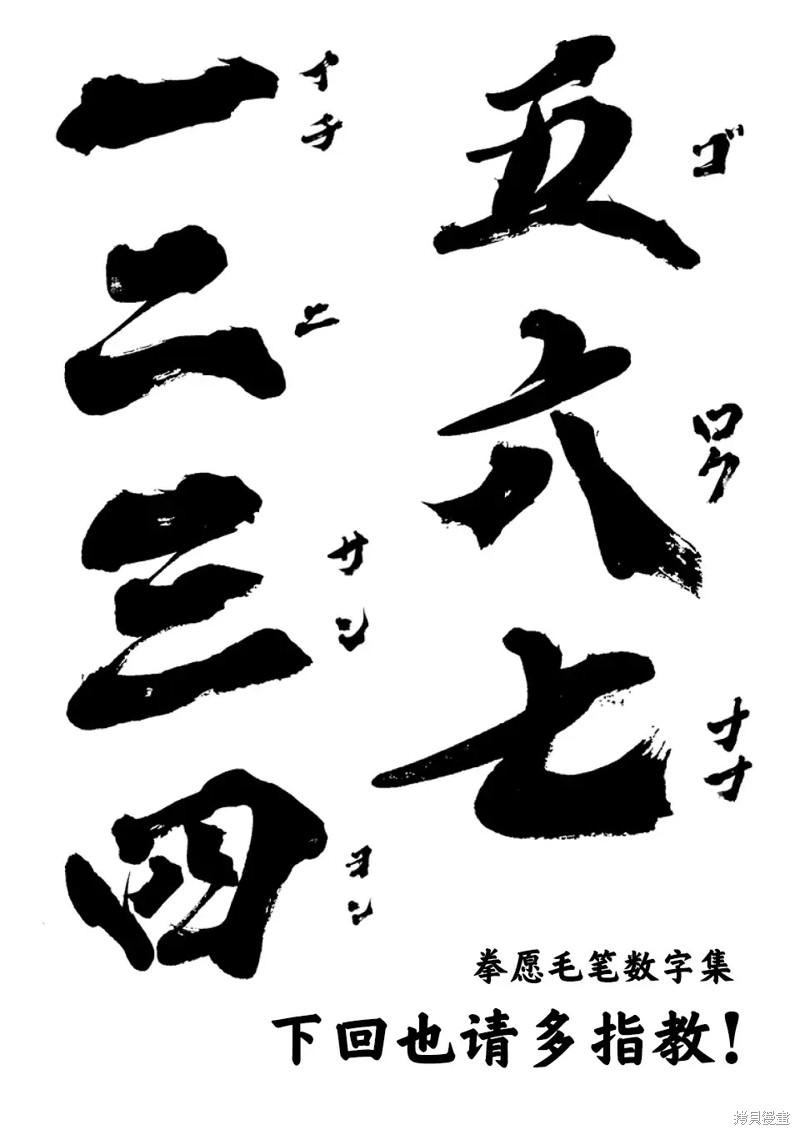 一
イチ
二
ニ
三
サン
四
ヨン
五
ゴ
六
ロク
七
ナナ
拳愿毛笔数字集
下回也请多指教!
拷貝漫畫